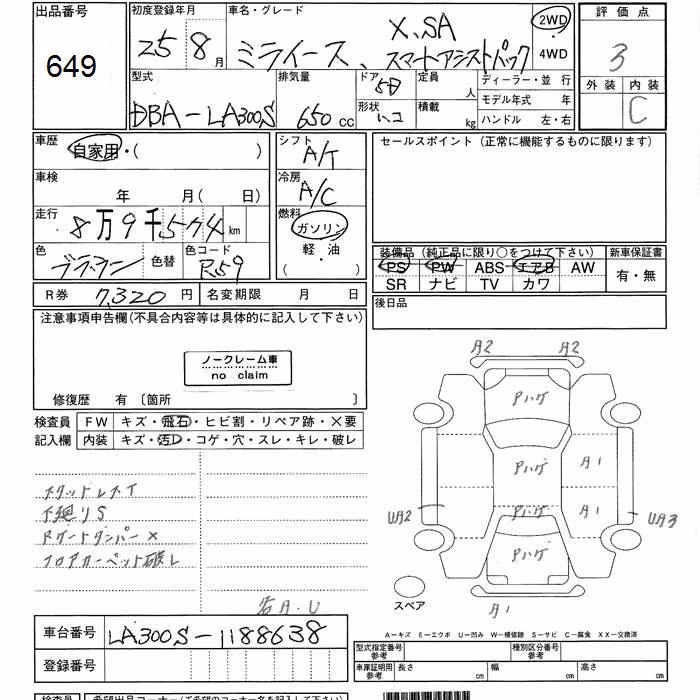 出品番号
649
初度登録年月
25 8 月
車名・グレード
X,SA
ミライース、スマートアシストパック
2WD
4WD
評価点
3
外装 内装
C
型式
DBA-LA300S
排気量
650 cc
ドア
5D
形状
ハコ
定員
人
積載
kg
ディーラー・並行
モデル年式 年
ハンドル 左・右
車歴
自家用・( )
シフト
A/T
セールスポイント(正常に機能するものに限ります)
車検
年 月( 日)
冷房
A/C
走行
8万9千574km
燃料
ガソリン
軽・油
( )
色
ブラウン
色替
色コード
R59
装備品(純正品に限り○をつけて下さい)
PS PW ABS エアB AW
SR ナビ TV カワ
新車保証書
有・無
R券 7,320 円
名変期限 月 日
後日品
注意事項申告欄(不具合内容等は具体的に記入して下さい)
ノークレーム車
no claim
修復歴 有〔箇所 〕
検査員
記入欄
FW キズ・飛石・ヒビ割・リペア跡・×要
内装 キズ・汚レ・コゲ・穴・スレ・キレ・破レ
スタッドレス
下廻りS
Rゲートダンパー×
フロアカーペット破レ
各A.U
A2 A2
Pハゲ
Pハゲ
A1
Pハゲ
A1
UA2
UA3
Pハゲ
A1
スペア
A-キズ E-エクボ U-凹み W-補修跡 S-サビ C-腐食 XX-交換済
車台番号
LA300S-1188638
登録番号
型式指定番号
参考
種別区分番号
参考
車庫証明用
参考
長さ cm
幅 cm
高さ cm